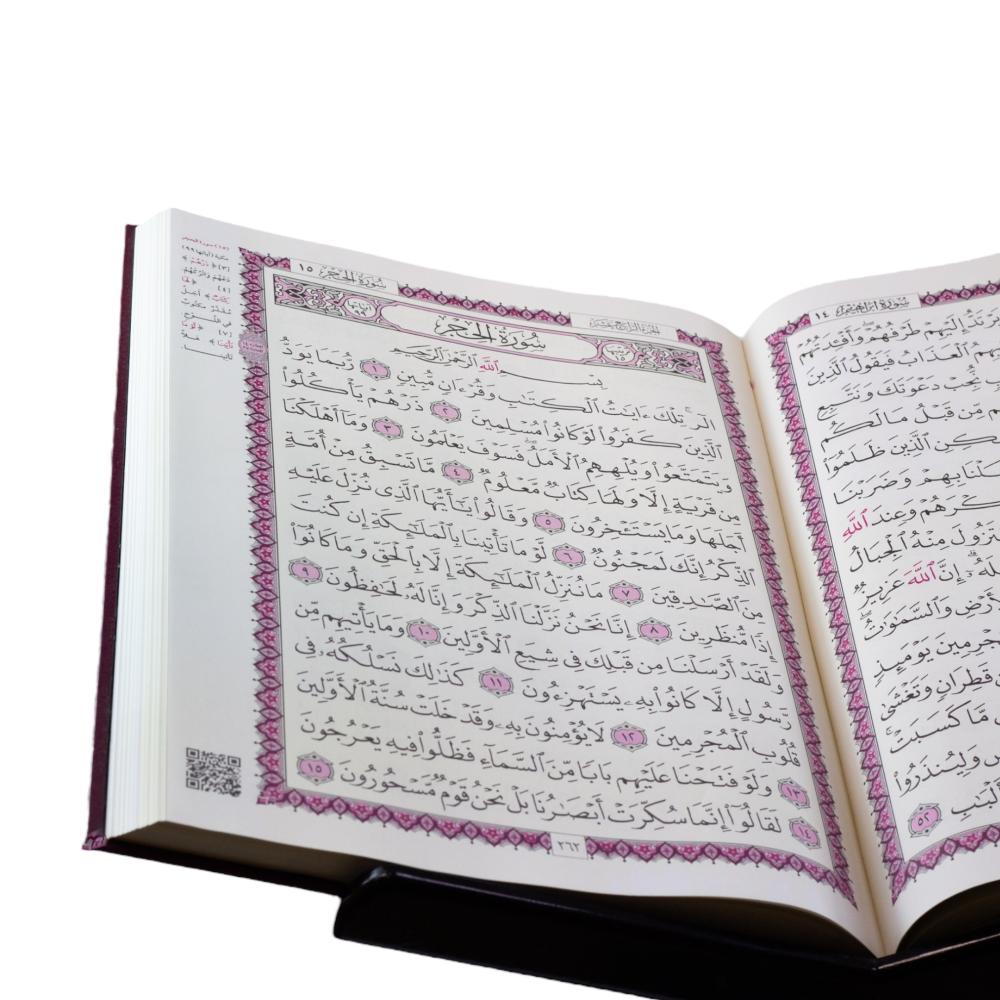 سُورَةُ إِبْرَاهِيمَ ١٤
إِلَيْهِمْ طَرْفُهُمْ وَأَفْـِٔدَتُهُمْ
ٱلْعَذَابُ فَيَقُولُ ٱلَّذِينَ
نُّجِبْ دَعْوَتَكَ وَنَتَّبِعِ
مِّن قَبْلُ مَا لَكُم
ٱلَّذِينَ ظَلَمُوٓا۟
بِهِمْ وَضَرَبْنَا
وَعِندَ ٱللَّهِ
لِتَزُولَ مِنْهُ ٱلْجِبَالُ
إِنَّ ٱللَّهَ عَزِيزٌ
وَٱلسَّمَٰوَٰتُ
يَوْمَئِذٍ
قَطِرَانٍ وَتَغْشَىٰ
مَّا كَسَبَتْ
وَلِيُنذَرُوا۟
٥٢
الجزء الرابع عشر
سُورَةُ الحِجْرِ ١٥
ترتيبها ١٥ سُورَةُ الحِجْرِ آياتها ٩٩
بِسْمِ ٱللَّهِ ٱلرَّحْمَٰنِ ٱلرَّحِيمِ
الٓر ۚ تِلْكَ ءَايَٰتُ ٱلْكِتَٰبِ وَقُرْءَانٍ مُّبِينٍ ١ رُّبَمَا يَوَدُّ
ٱلَّذِينَ كَفَرُوا۟ لَوْ كَانُوا۟ مُسْلِمِينَ ٢ ذَرْهُمْ يَأْكُلُوا۟
وَيَتَمَتَّعُوا۟ وَيُلْهِهِمُ ٱلْأَمَلُ ۖ فَسَوْفَ يَعْلَمُونَ ٣ وَمَآ أَهْلَكْنَا
مِن قَرْيَةٍ إِلَّا وَلَهَا كِتَابٌ مَّعْلُومٌ ٤ مَّا تَسْبِقُ مِنْ أُمَّةٍ
أَجَلَهَا وَمَا يَسْتَـْٔخِرُونَ ٥ وَقَالُوا۟ يَٰٓأَيُّهَا ٱلَّذِى نُزِّلَ عَلَيْهِ
ٱلذِّكْرُ إِنَّكَ لَمَجْنُونٌ ٦ لَّوْ مَا تَأْتِينَا بِٱلْمَلَٰٓئِكَةِ إِن كُنتَ
مِنَ ٱلصَّٰدِقِينَ ٧ مَا نُنَزِّلُ ٱلْمَلَٰٓئِكَةَ إِلَّا بِٱلْحَقِّ وَمَا كَانُوٓا۟
إِذًا مُّنظَرِينَ ٨ إِنَّا نَحْنُ نَزَّلْنَا ٱلذِّكْرَ وَإِنَّا لَهُۥ لَحَٰفِظُونَ ٩
وَلَقَدْ أَرْسَلْنَا مِن قَبْلِكَ فِى شِيَعِ ٱلْأَوَّلِينَ ١٠ وَمَا يَأْتِيهِم مِّن
رَّسُولٍ إِلَّا كَانُوا۟ بِهِۦ يَسْتَهْزِءُونَ ١١ كَذَٰلِكَ نَسْلُكُهُۥ فِى
قُلُوبِ ٱلْمُجْرِمِينَ ١٢ لَا يُؤْمِنُونَ بِهِۦ ۖ وَقَدْ خَلَتْ سُنَّةُ ٱلْأَوَّلِينَ
١٣ وَلَوْ فَتَحْنَا عَلَيْهِم بَابًا مِّنَ ٱلسَّمَآءِ فَظَلُّوا۟ فِيهِ يَعْرُجُونَ
١٤ لَقَالُوٓا۟ إِنَّمَا سُكِّرَتْ أَبْصَٰرُنَا بَلْ نَحْنُ قَوْمٌ مَّسْحُورُونَ ١٥
٢٦٢